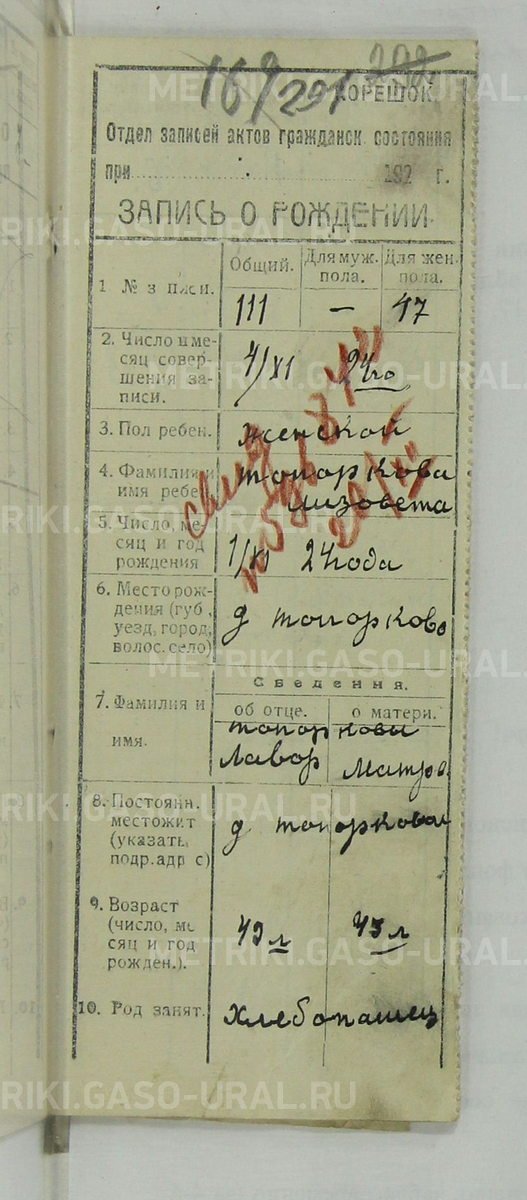 169
291 292
КОРЕШОК.
Отдел записей актов гражданск. состояния
при 192 г.
ЗАПИСЬ О РОЖДЕНИИ.
1 № з писи.
Общий. Для муж. пола. Для жен пола.
111 — 47
2. Число и ме-
сяц совер-
шения за-
писи.
4/XI 24го
3. Пол ребен.
женской
4. Фамилия и
имя ребен.
топоркова
лизовета
5. Число, ме-
сяц и год
рождения
1/XI 24 года
6. Место рож-
дения (губ.,
уезд, город,
волос. село)
д топорково
Сведения.
7. Фамилия и
имя.
об отце. о матери.
топорковы
Лавор Матро
8. Постоянн.
местожит
(указать
подр. адр с)
д топоркова
9. Возраст
(число, ме
сяц и год
рожден.).
43 л 43 л
10. Род занят.
хлебопашец
METRIKI.GASO-URAL.RU